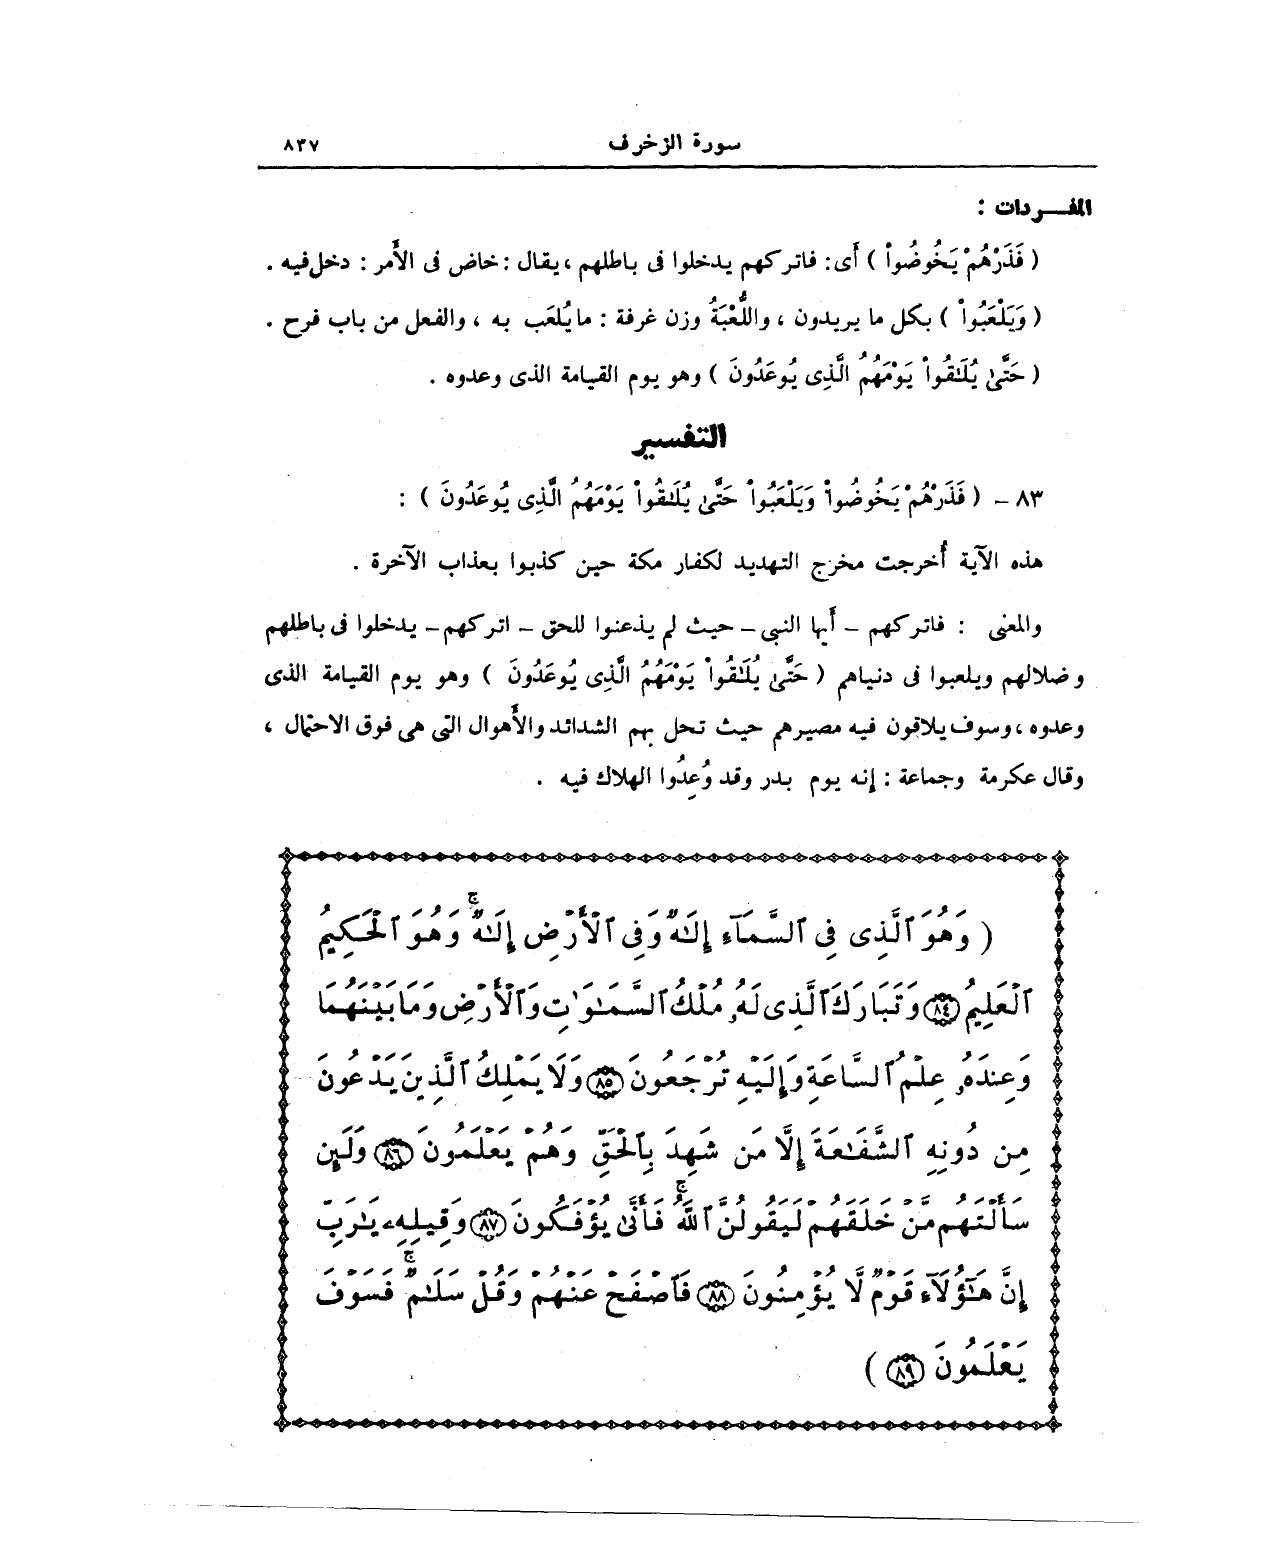 سورة الزخرف ٨٣٧
المفـــردات :
( فَذَرْهُمْ يَخُوضُواْ ) أَى: فاتركهم يدخلوا فى باطلهم ، يقال : خاض فى الأَمر : دخل فيه .
( وَيَلْعَبُواْ ) بكل ما يريدون ، واللُّعْبَةُ وزن غرفة : ما يُلعَب به ، والفعل من باب فرح .
( حَتَّىٰ يُلَٰقُواْ يَوْمَهُمُ الَّذِى يُوعَدُونَ ) وهو يوم القيامة الذى وعدوه .
التفسير
٨٣ – ( فَذَرْهُمْ يَخُوضُواْ وَيَلْعَبُواْ حَتَّىٰ يُلَٰقُواْ يَوْمَهُمُ الَّذِى يُوعَدُونَ ) :
هذه الآية أُخرجت مخرج التهديد لكفار مكة حين كذبوا بعذاب الآخرة .
والمعنى : فاتركهم – أَيها النبى – حيث لم يذعنوا للحق – اتركهم – يدخلوا فى باطلهم
وضلالهم ويلعبوا فى دنياهم ( حَتَّىٰ يُلَٰقُواْ يَوْمَهُمُ الَّذِى يُوعَدُونَ ) وهو يوم القيامة الذى
وعدوه ، وسوف يلاقون فيه مصيرهم حيث تحل بهم الشدائد والأَهوال التى هى فوق الاحتمال ،
وقال عكرمة وجماعة : إنه يوم بدر وقد وُعِدُوا الهلاك فيه .
( وَهُوَ ٱلَّذِى فِى ٱلسَّمَآءِ إِلَٰهٌ وَفِى ٱلْأَرْضِ إِلَٰهٌ ۚ وَهُوَ ٱلْحَكِيمُ
ٱلْعَلِيمُ ٨٤ وَتَبَارَكَ ٱلَّذِى لَهُۥ مُلْكُ ٱلسَّمَٰوَٰتِ وَٱلْأَرْضِ وَمَا بَيْنَهُمَا
وَعِندَهُۥ عِلْمُ ٱلسَّاعَةِ وَإِلَيْهِ تُرْجَعُونَ ٨٥ وَلَا يَمْلِكُ ٱلَّذِينَ يَدْعُونَ
مِن دُونِهِ ٱلشَّفَٰعَةَ إِلَّا مَن شَهِدَ بِٱلْحَقِّ وَهُمْ يَعْلَمُونَ ٨٦ وَلَئِن
سَأَلْتَهُم مَّنْ خَلَقَهُمْ لَيَقُولُنَّ ٱللَّهُ ۖ فَأَنَّىٰ يُؤْفَكُونَ ٨٧ وَقِيلِهِۦ يَٰرَبِّ
إِنَّ هَٰٓؤُلَآءِ قَوْمٌ لَّا يُؤْمِنُونَ ٨٨ فَٱصْفَحْ عَنْهُمْ وَقُلْ سَلَٰمٌ ۚ فَسَوْفَ
يَعْلَمُونَ ٨٩ )